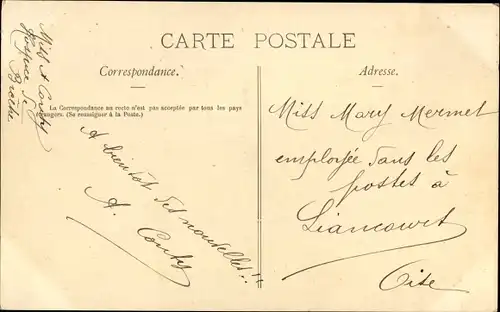 CARTE POSTALE
Correspondance.
La Correspondance au recto n'est pas acceptée par tous les pays
étrangers. (Se renseigner à la Poste.)
Miss A Conty
Hospice de
A bientôt des nouvelles!!
A. Conty
Adresse.
Miss Mary Mermet
employée dans les
postes à
Liancourt
Oise